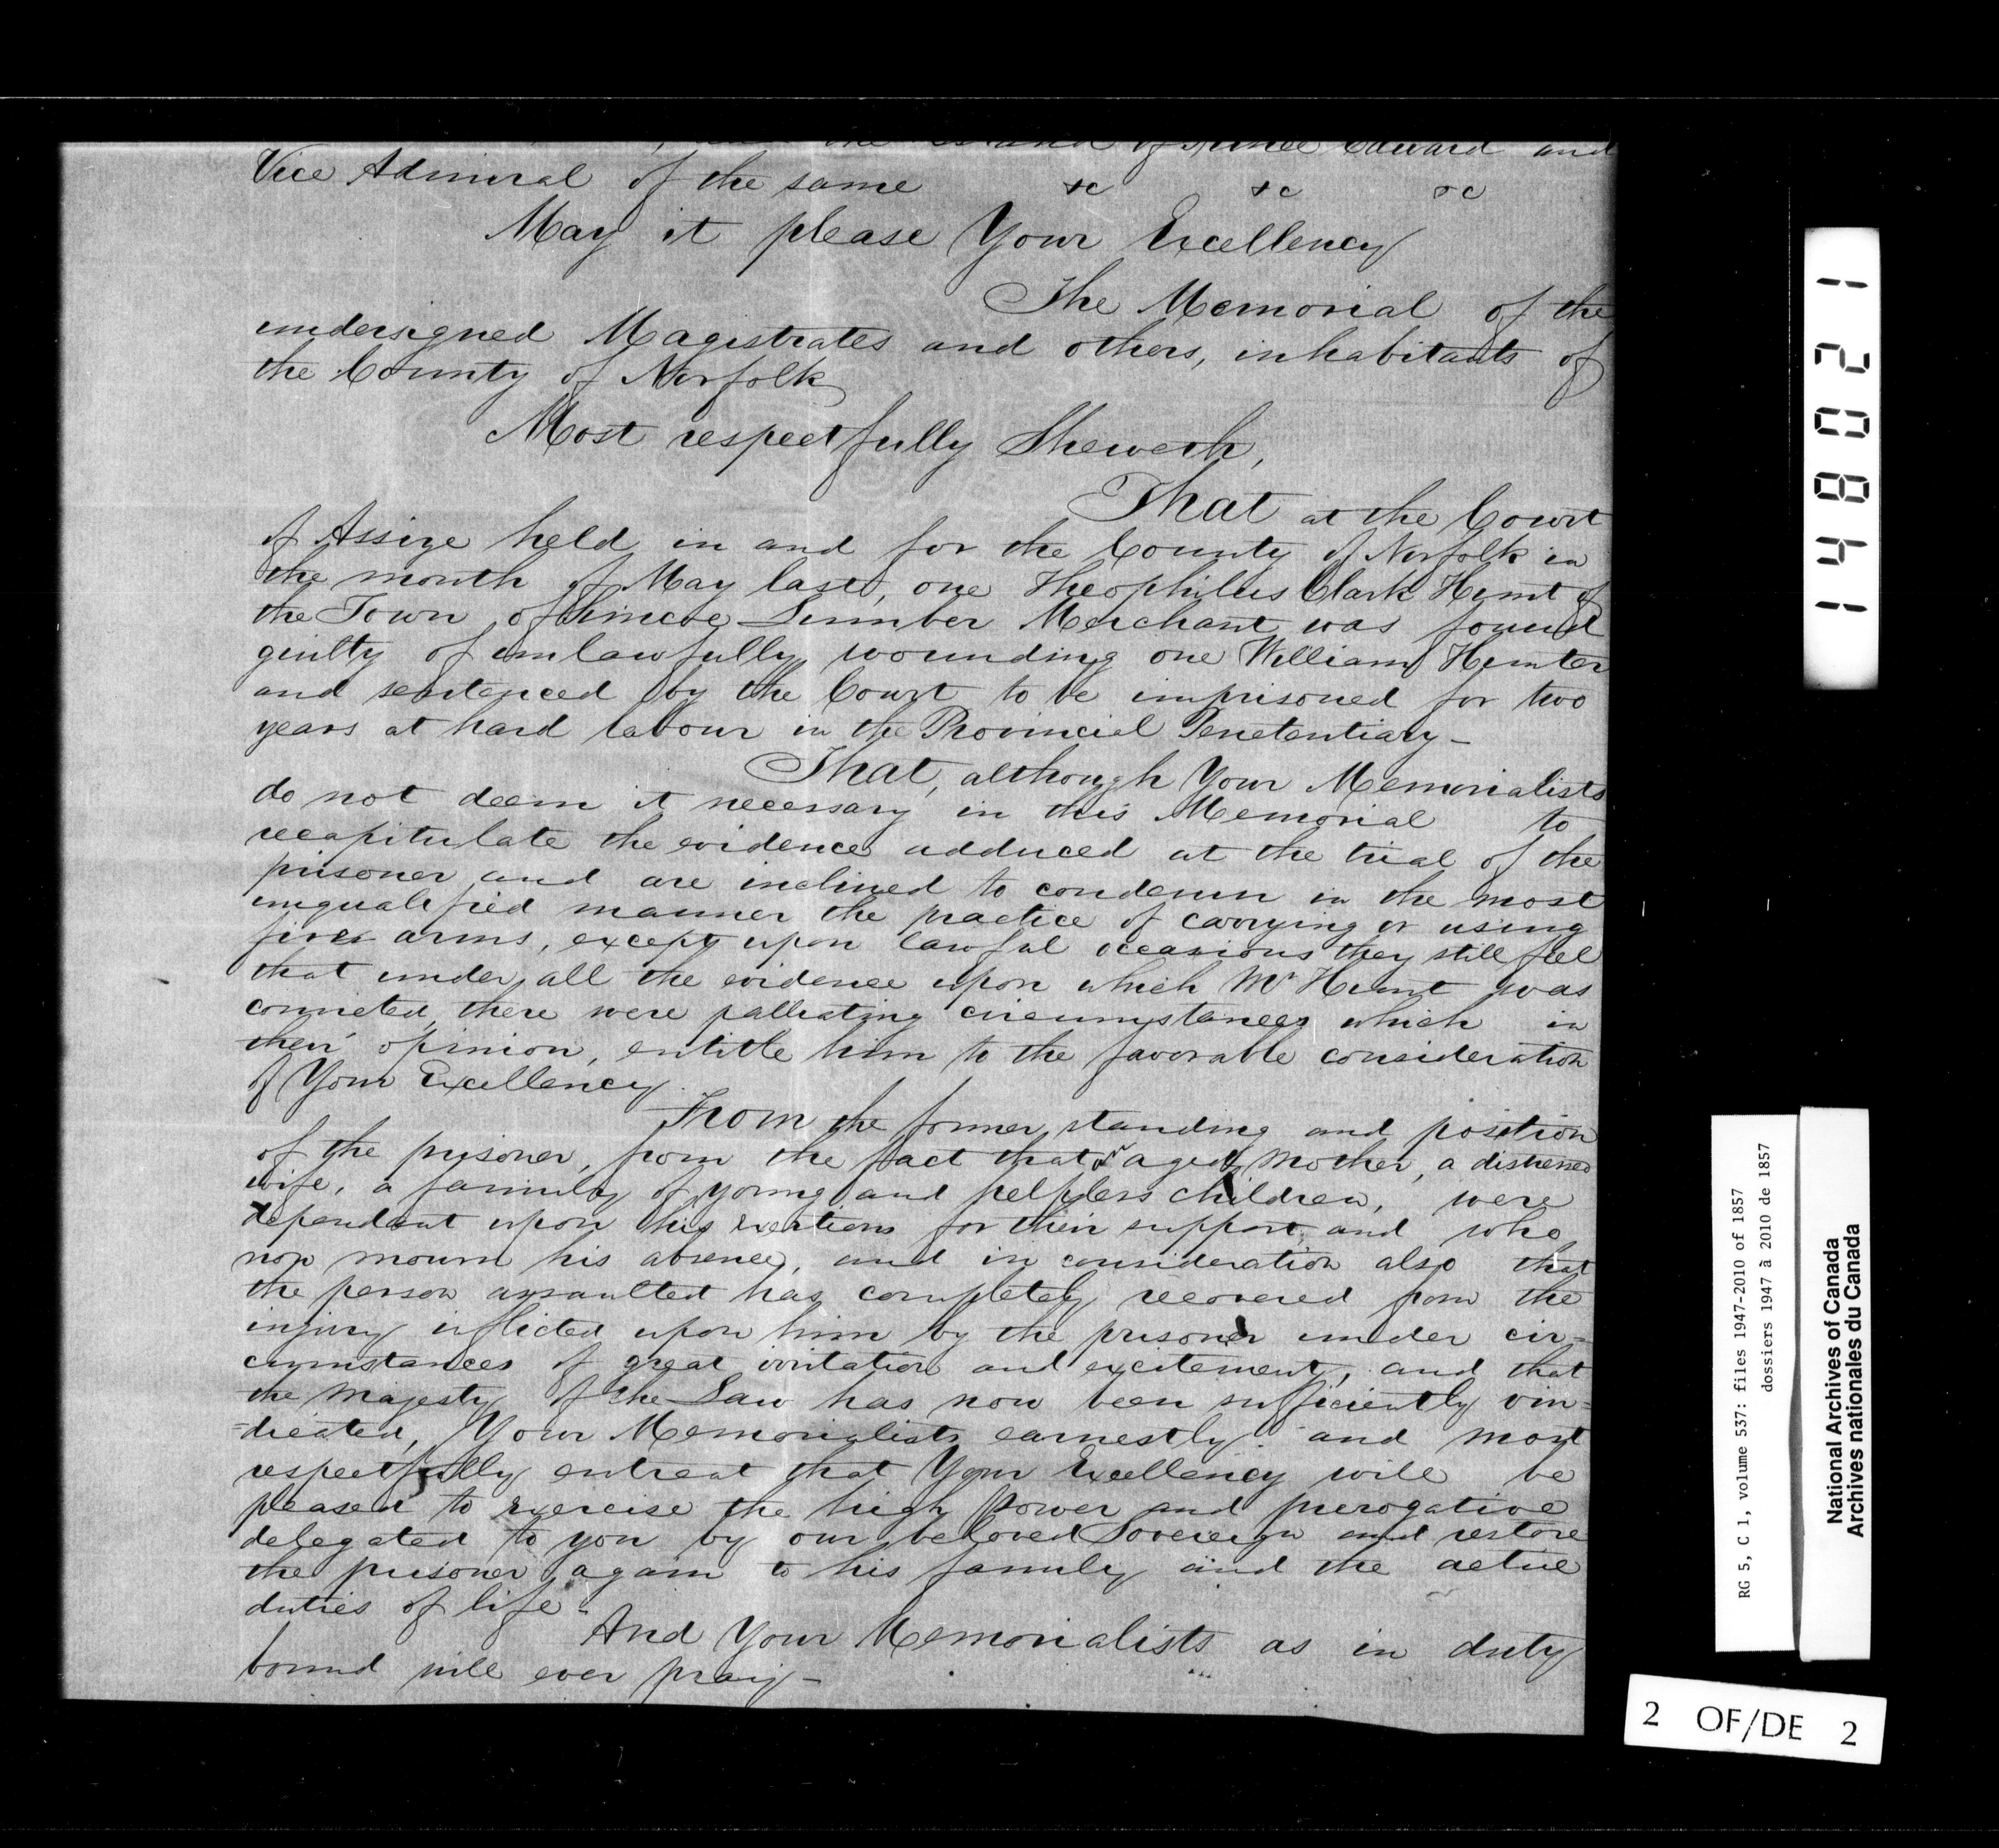 the Island of Prince Edward and
Vice Admiral of the same &c &c &c
May it please Your Excellency
The Memorial of the
undersigned Magistrates and others, inhabitants of
the County of Norfolk
Most respectfully Sheweth,
That at the Court
of Assize held in and for the County of Norfolk in
the month of May last, one Theophilus Clark Hunt of
the Town of Simcoe Lumber Merchant was found
guilty of unlawfully wounding one William Hunter
and sentenced by the Court to be imprisoned for two
years at hard labour in the Provincial Penetentiary -
That, although Your Memorialists
do not deem it necessary in this Memorial to
recapitulate the evidence adduced at the trial of the
prisoner and are inclined to condemn in the most
unqualified manner the practice of carrying or using
fire arms, except upon lawful occasions they still feel
that under all the evidence upon which Mr Hunt was
convicted, there were palliating circumstances which in
their opinion, entitle him to the favorable consideration
of Your Excellency.
From the former standing and position
of the prisoner, from the fact that aged Mother, a distressed
wife, a family of young and helpless children, were
dependant upon his exertions for their support, and who
now mourn his absence, and in consideration also that
the person assaulted has completely recovered from the
injury inflicted upon him by the prisoner under cir=
cumstances of great irritation and excitement, and that
the Majesty of the Law has now been sufficiently vin=
=dicated, Your Memorialists earnestly and most
respectfully entreat that Your Excellency will be
pleased to exercise the high power and prerogative
delegated to you by our beloved Sovereign and restore
the prisoner again to his family and the active
duties of life -
And Your Memorialists as in duty
bound will ever pray -
148021
RG 5, C 1, volume 537: files 1947-2010 of 1857
dossiers 1947 à 2010 de 1857
National Archives of Canada
Archives nationales du Canada
2 OF/DE 2